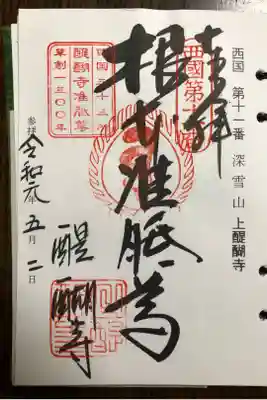 西国 第十一番 深雪山 上醍醐寺
奉拝
西國第十一番
根本准胝尊
西国三十三所
醍醐寺准胝堂
草創1300年
醍醐寺
参拝 令和元年 五月 二日